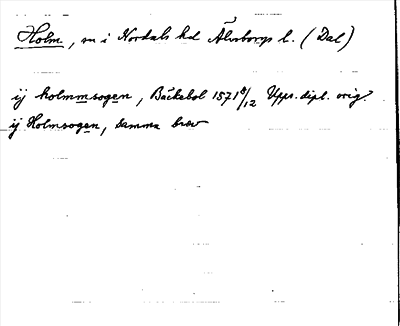 Holm, sn i Nordals hd Älvsborgs l. (Dal)
ij holmmsogen, Bäckebol 1571 8/12 Upps. dipl. orig.
ij Holmsogen, samma brev